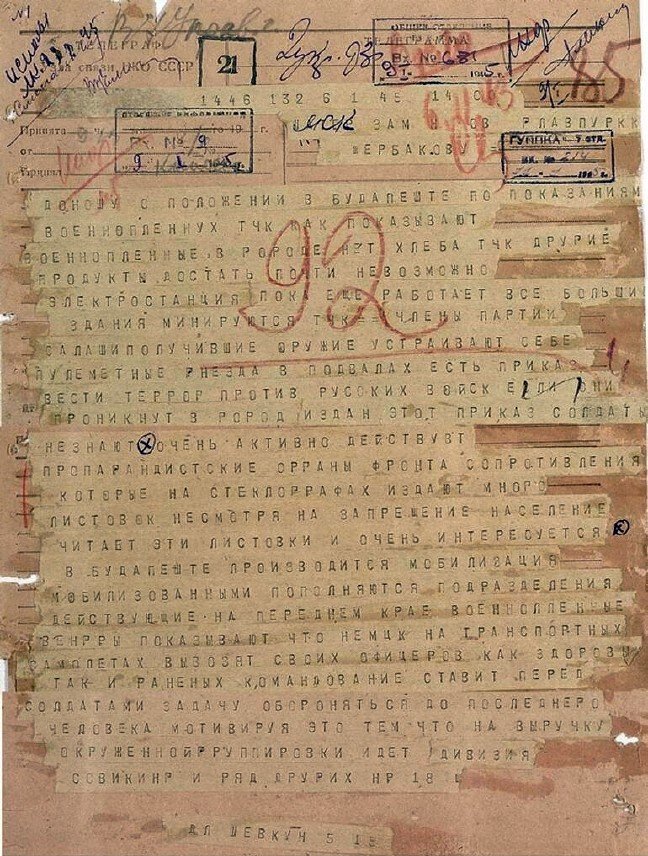 ТЕЛЕГРАФ
НКО СССР
21
ТЕЛЕГРАММА
Вх. №
85
1446 132 6 1 45 14 0
Принята
ЗАМ
ГЛАВПУРКК
от
ЩЕРБАКОВУ
ДОНОШУ О ПОЛОЖЕНИИ В БУДАПЕШТЕ ПО ПОКАЗАНИЯМ
ВОЕННОПЛЕННУХ ТЧК АК ПОКАЗЫВАЮТ
ВОЕННОПЛЕННЫЕ В РОРОДЕ НЕТ ХЛЕБА ТЧК ДРУРИЕ
ПРОДУКТЫ ДОСТАТЬ ПОЧТИ НЕВОЗМОЖНО
92
ЭЛЕКТРОСТАНЦИЯ ПОКА ЕЩЕ РАБОТАЕТ ВСЕ БОЛЬШИЕ
ЗДАНИЯ МИНИРУЮТСЯ ТЧК ЧЛЕНЫ ПАРТИИ
САЛАШИПОЛУЧИВШИЕ ОРУЖИЕ УСТРАИВАЮТ СЕБЕ
ПУЛЕМЕТНЫЕ РНЕЗДА В ПОДВАЛАХ ЕСТЬ ПРИКАЗ
ВЕСТИ ТЕРРОР ПРОТИВ РУССКИХ ВОЙСК ЕСЛИ ОНИ
ПРОНИКНУТ В РОРОД ИЗДАН ЭТОТ ПРИКАЗ СОЛДАТЫ
НЕЗНАЮТ ОЧЕНЬ АКТИВНО ДЕЙСТВУВТ
ПРОПАРАНДИСТСКИЕ ОРГАНЫ ФРОНТА СОПРОТИВЛЕНИЯ
КОТОРЫЕ НА СТЕКЛОРРАФАХ ИЗДАЮТ МНОРО
ЛИСТОВОК НЕСМОТРЯ НА ЗАПРЕШЕНИЕ НАСЕЛЕНИЕ
ЧИТАЕТ ЭТИ ЛИСТОВКИ И ОЧЕНЬ ИНТЕРЕСУЕТСЯ
В БУДАПЕШТЕ ПРОИЗВОДИТСЯ МОБИЛИЗАЦИЯ
МОБИЛИЗОВАННЫМИ ПОПОЛНЯЮТСЯ ПОДРАЗДЕЛЕНИЯ
ДЕЙСТВУЮЩИЕ НА ПЕРЕДНЕМ КРАЕ ВОЕННОПЛЕННЫЕ
ВЕНРРЫ ПОКАЗЫВАЮТ ЧТО НЕМЦК НА ТРАНСПОРТНЫХ
САМОЛЕТАХ ВЫВОЗЯТ СВОИХ ОФИЦЕРОВ КАК ЗДОРОВЫ
ТАК И РАНЕНЫХ КОМАНДОВАНИЕ СТАВИТ ПЕРЕД
СОЛДАТАМИ ЗАДАЧУ ОБОРОНЯТЬСЯ ДО ПОСЛЕДНЕРО
ЧЕЛОВЕКА МОТИВИРУЯ ЭТО ТЕМ ЧТО НА ВЫРУЧКУ
ОКРУЖЕННОЙ РРУППИРОВКИ ИДЕТ ДИВИЗИЯ
СОВИКИНР И РЯД ДРУРИХ НР 18
ДЛ ШЕВКУЧ 5 1